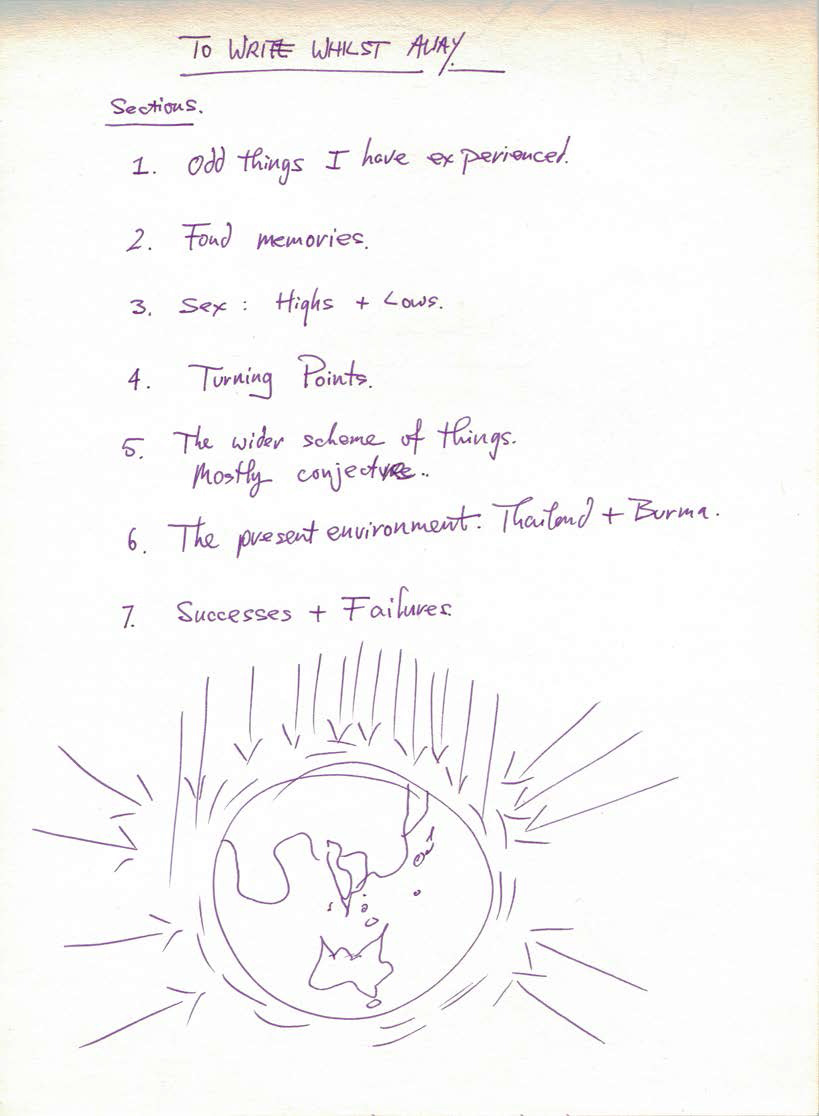 TO WRITE WHILST AWAY.
Sections.
1. Odd things I have experienced.
2. Fond memories.
3. Sex : Highs + Lows.
4. Turning Points.
5. The wider scheme of things.
Mostly conjecture..
6. The present environment: Thailand + Burma.
7. Successes + Failures.